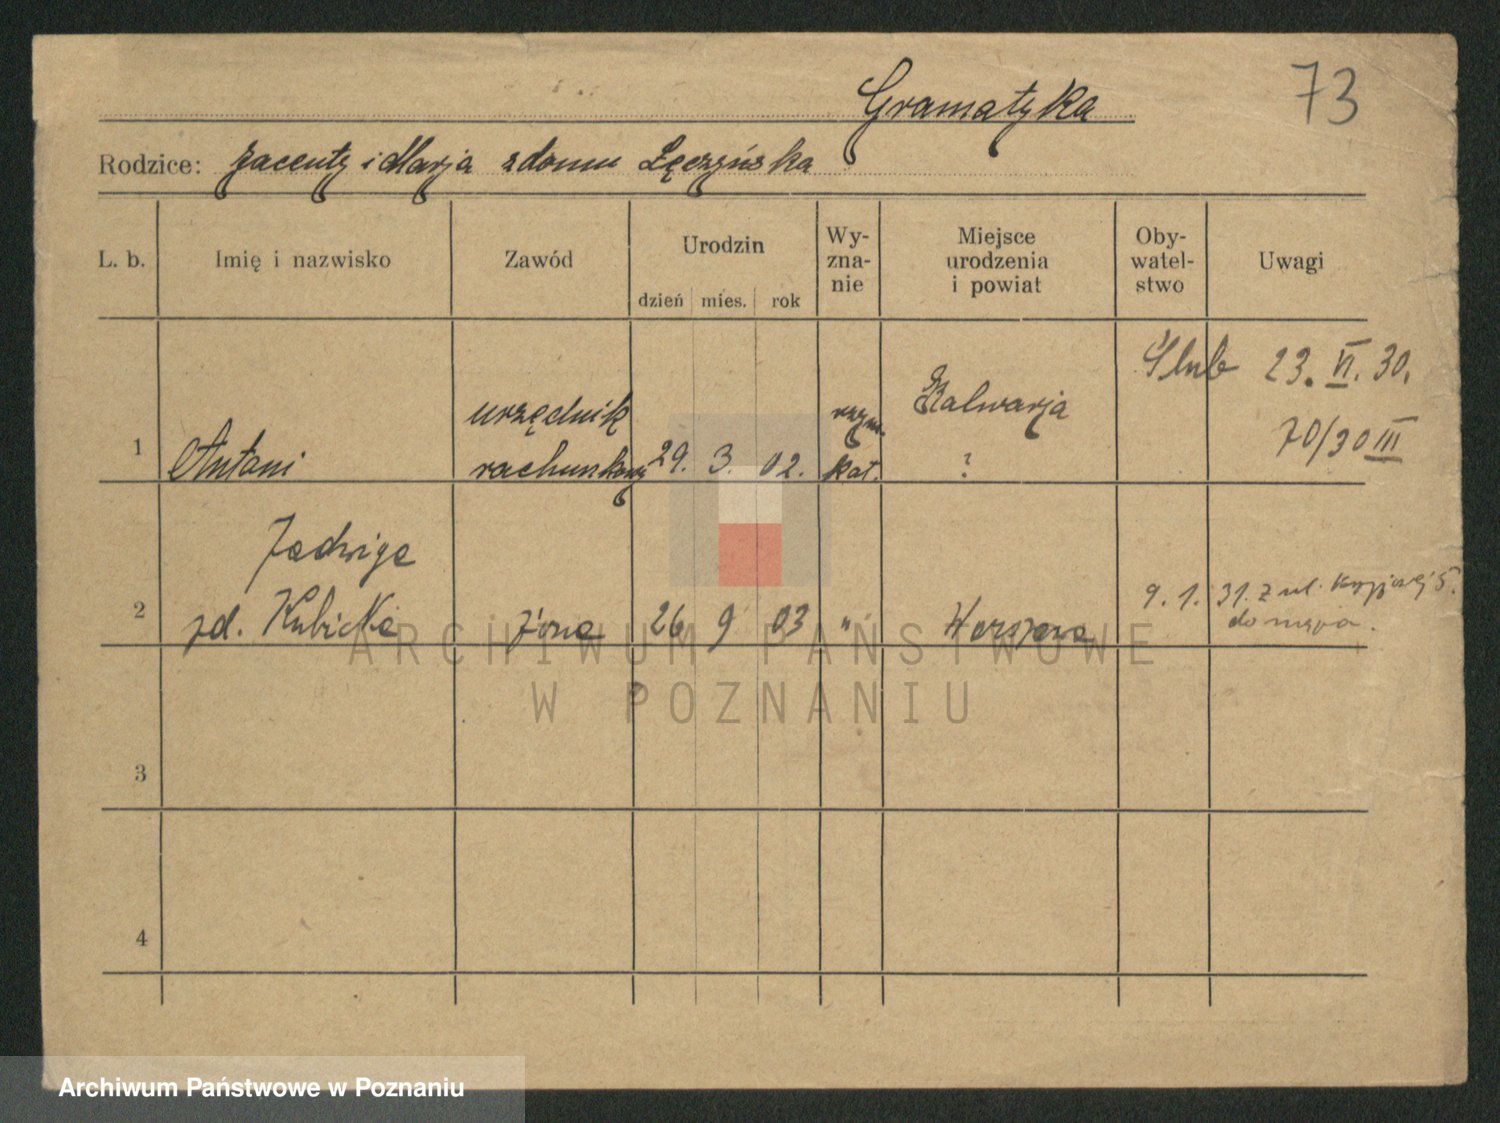 Gramatyka
73
Rodzice: Jacenty i Marja z domu Łęczyńska
L. b.
Imię i nazwisko
Zawód
Urodzin
dzień mies. rok
Wy-
zna-
nie
Miejsce
urodzenia
i powiat
Oby-
watel-
stwo
Uwagi
Ślub 23. VI. 30.
70/30 III
1
Antoni
urzędnik
rachunkowy
29. 3. 02.
rzym.
kat.
Kalwarja
?
2
Jadwiga
zd. Kubicka
żona
26 9 03
"
Warszawa
9. 1. 31. z ul.
do męża.
3
4
ARCHIWUM PAŃSTWOWE
W POZNANIU
Archiwum Państwowe w Poznaniu